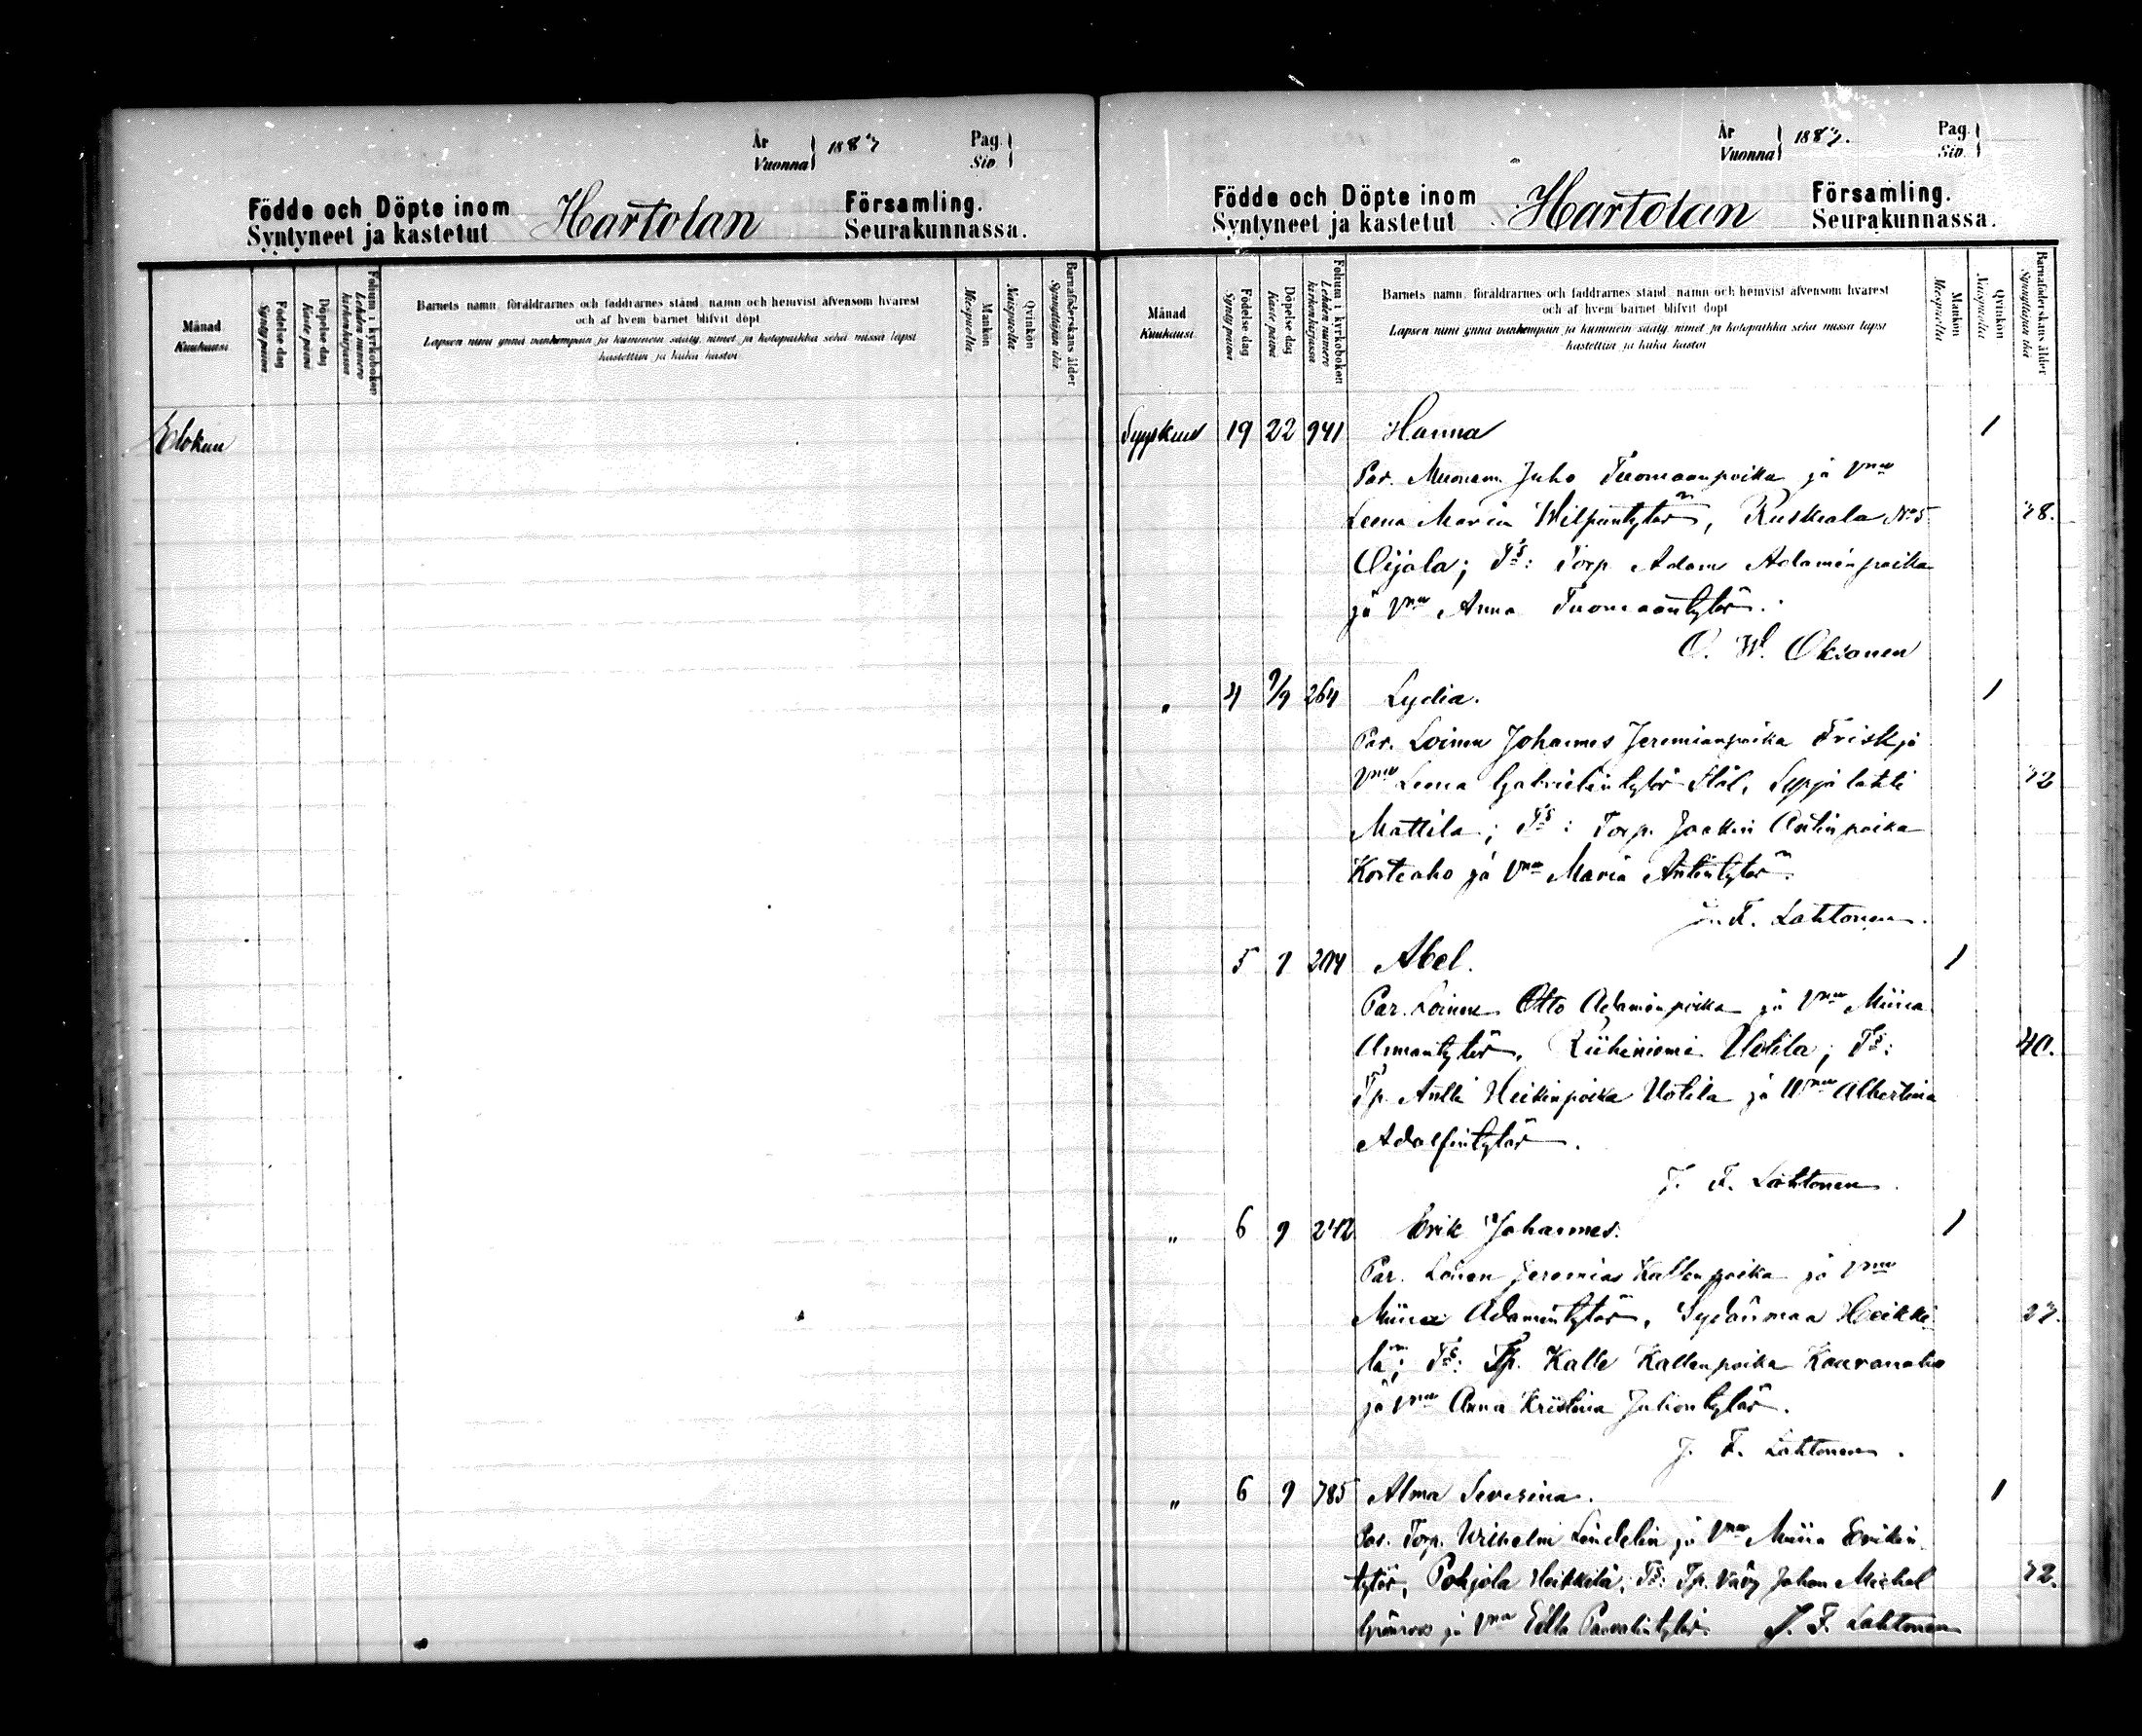 År
Vuonna
1883
Pag.
Siv.
Födde och Döpte inom
Syntyneet ja kastetut
Hartolan
Församling.
Seurakunnassa.
Månad
Kuukausi
Födelse dag
Syntypäivä
Döpelse dag
Kastepäivä
Folium i kyrkoboken
Lehden numero kirkonkirjassa
Barnets namn, föräldrarnes och faddrarnes stånd, namn och hemvist äfvensom hvarest
och af hvem barnet blifvit döpt
Lapsen nimi ynnä vanhempain ja kummein sääty, nimet ja kotopaikka sekä missä lapsi
kastettiin ja kuka kastoi
Mankön
Miespuolia
Qvinkön
Naispuolia
Barnaföderskans ålder
Synnyttäjän ikä
Elokuu
År
Vuonna
1883.
Pag.
Siv.
Födde och Döpte inom
Syntyneet ja kastetut
Hartolan
Församling.
Seurakunnassa.
Månad
Kuukausi
Födelse dag
Syntypäivä
Döpelse dag
Kastepäivä
Folium i kyrkoboken
Lehden numero kirkonkirjassa
Barnets namn, föräldrarnes och faddrarnes stånd, namn och hemvist äfvensom hvarest
och af hvem barnet blifvit döpt
Lapsen nimi ynnä vanhempain ja kummein sääty, nimet ja kotopaikka sekä missä lapsi
kastettiin ja kuka kastoi
Mankön
Miespuolia
Qvinkön
Naispuolia
Barnaföderskans ålder
Synnyttäjän ikä
Syyskuu 19 22 941 Hanna 1
Par. Muonam. Juho Tuomaanpoika ja Vmo
Leena Maria Wilpuntytär, Ruskeala No 5 38.
Ojala; Ts: Torp. Adam Adaminpoika
ja Vmo Anna Tuomaantytär.
O. W. Oksanen
" 4 9/9 264 Lydia. 1
Par. Loinen Johannes Jeremianpoika Frisk ja
Vmo Leena Gabrielintytär Stål, Sepjälahti 32
Mattila; Ts: Torp. Joakim Antinpoika
Korteaho ja Vmo Maria Antintytär.
J. F. Lahtonen.
5 9 Abel. 1
Par. Loinen Otto Adaminpoika ja Vmo Miina
Riihiniemi Uotila; Ts: 40.
Tp. Antti Heikinpoika Uotila ja Wmo Albertina
Adolfintytär.
J. F. Lahtonen.
" 6 9 242 Erik Johannes. 1
Par. Loinen Jeremias Kallenpoika ja Vmo
Miina Adamintytär, Sydänmaa Heikki-
lä; Ts: Tp. Kalle Kallenpoika Kauranaho
ja Vmo Anna Kristina Juhontytär.
J. F. Lahtonen.
" 6 9 785 Alma Severina. 1
Par. Torp. Wilhelm Lindelin ja Vmo Miina Erikin
tytär, Pohjola Heikkilä; Ts: Tp. Vävy Johan Mickel 32.
Grönroos ja Vmo Edla Paavalintytär. J. F. Lahtonen